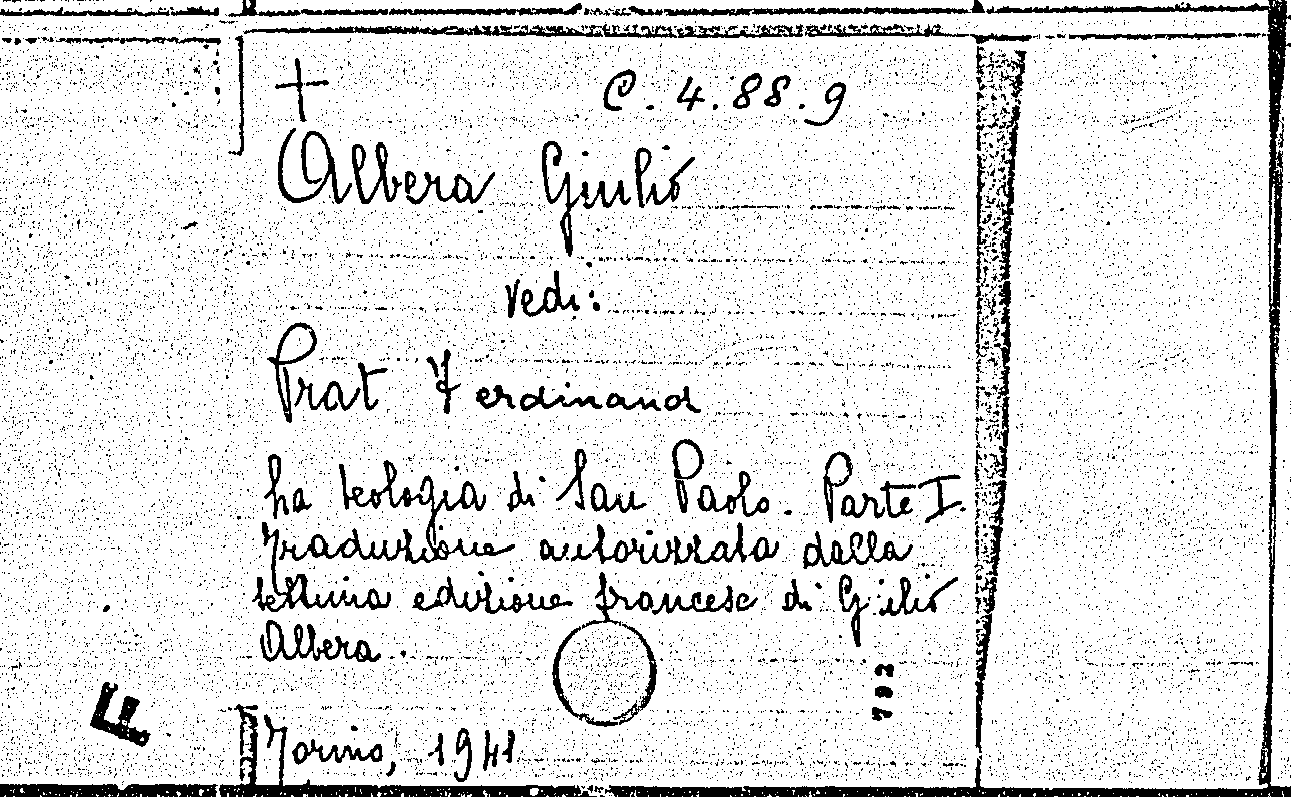 † C. 4. 88. 9
Albera Giulio
vedi:
Prat Ferdinand
La teologia di San Paolo. Parte I.
Traduzione autorizzata dalla
settima edizione francese di Giulio
Albera.
792
F
Torino, 1941